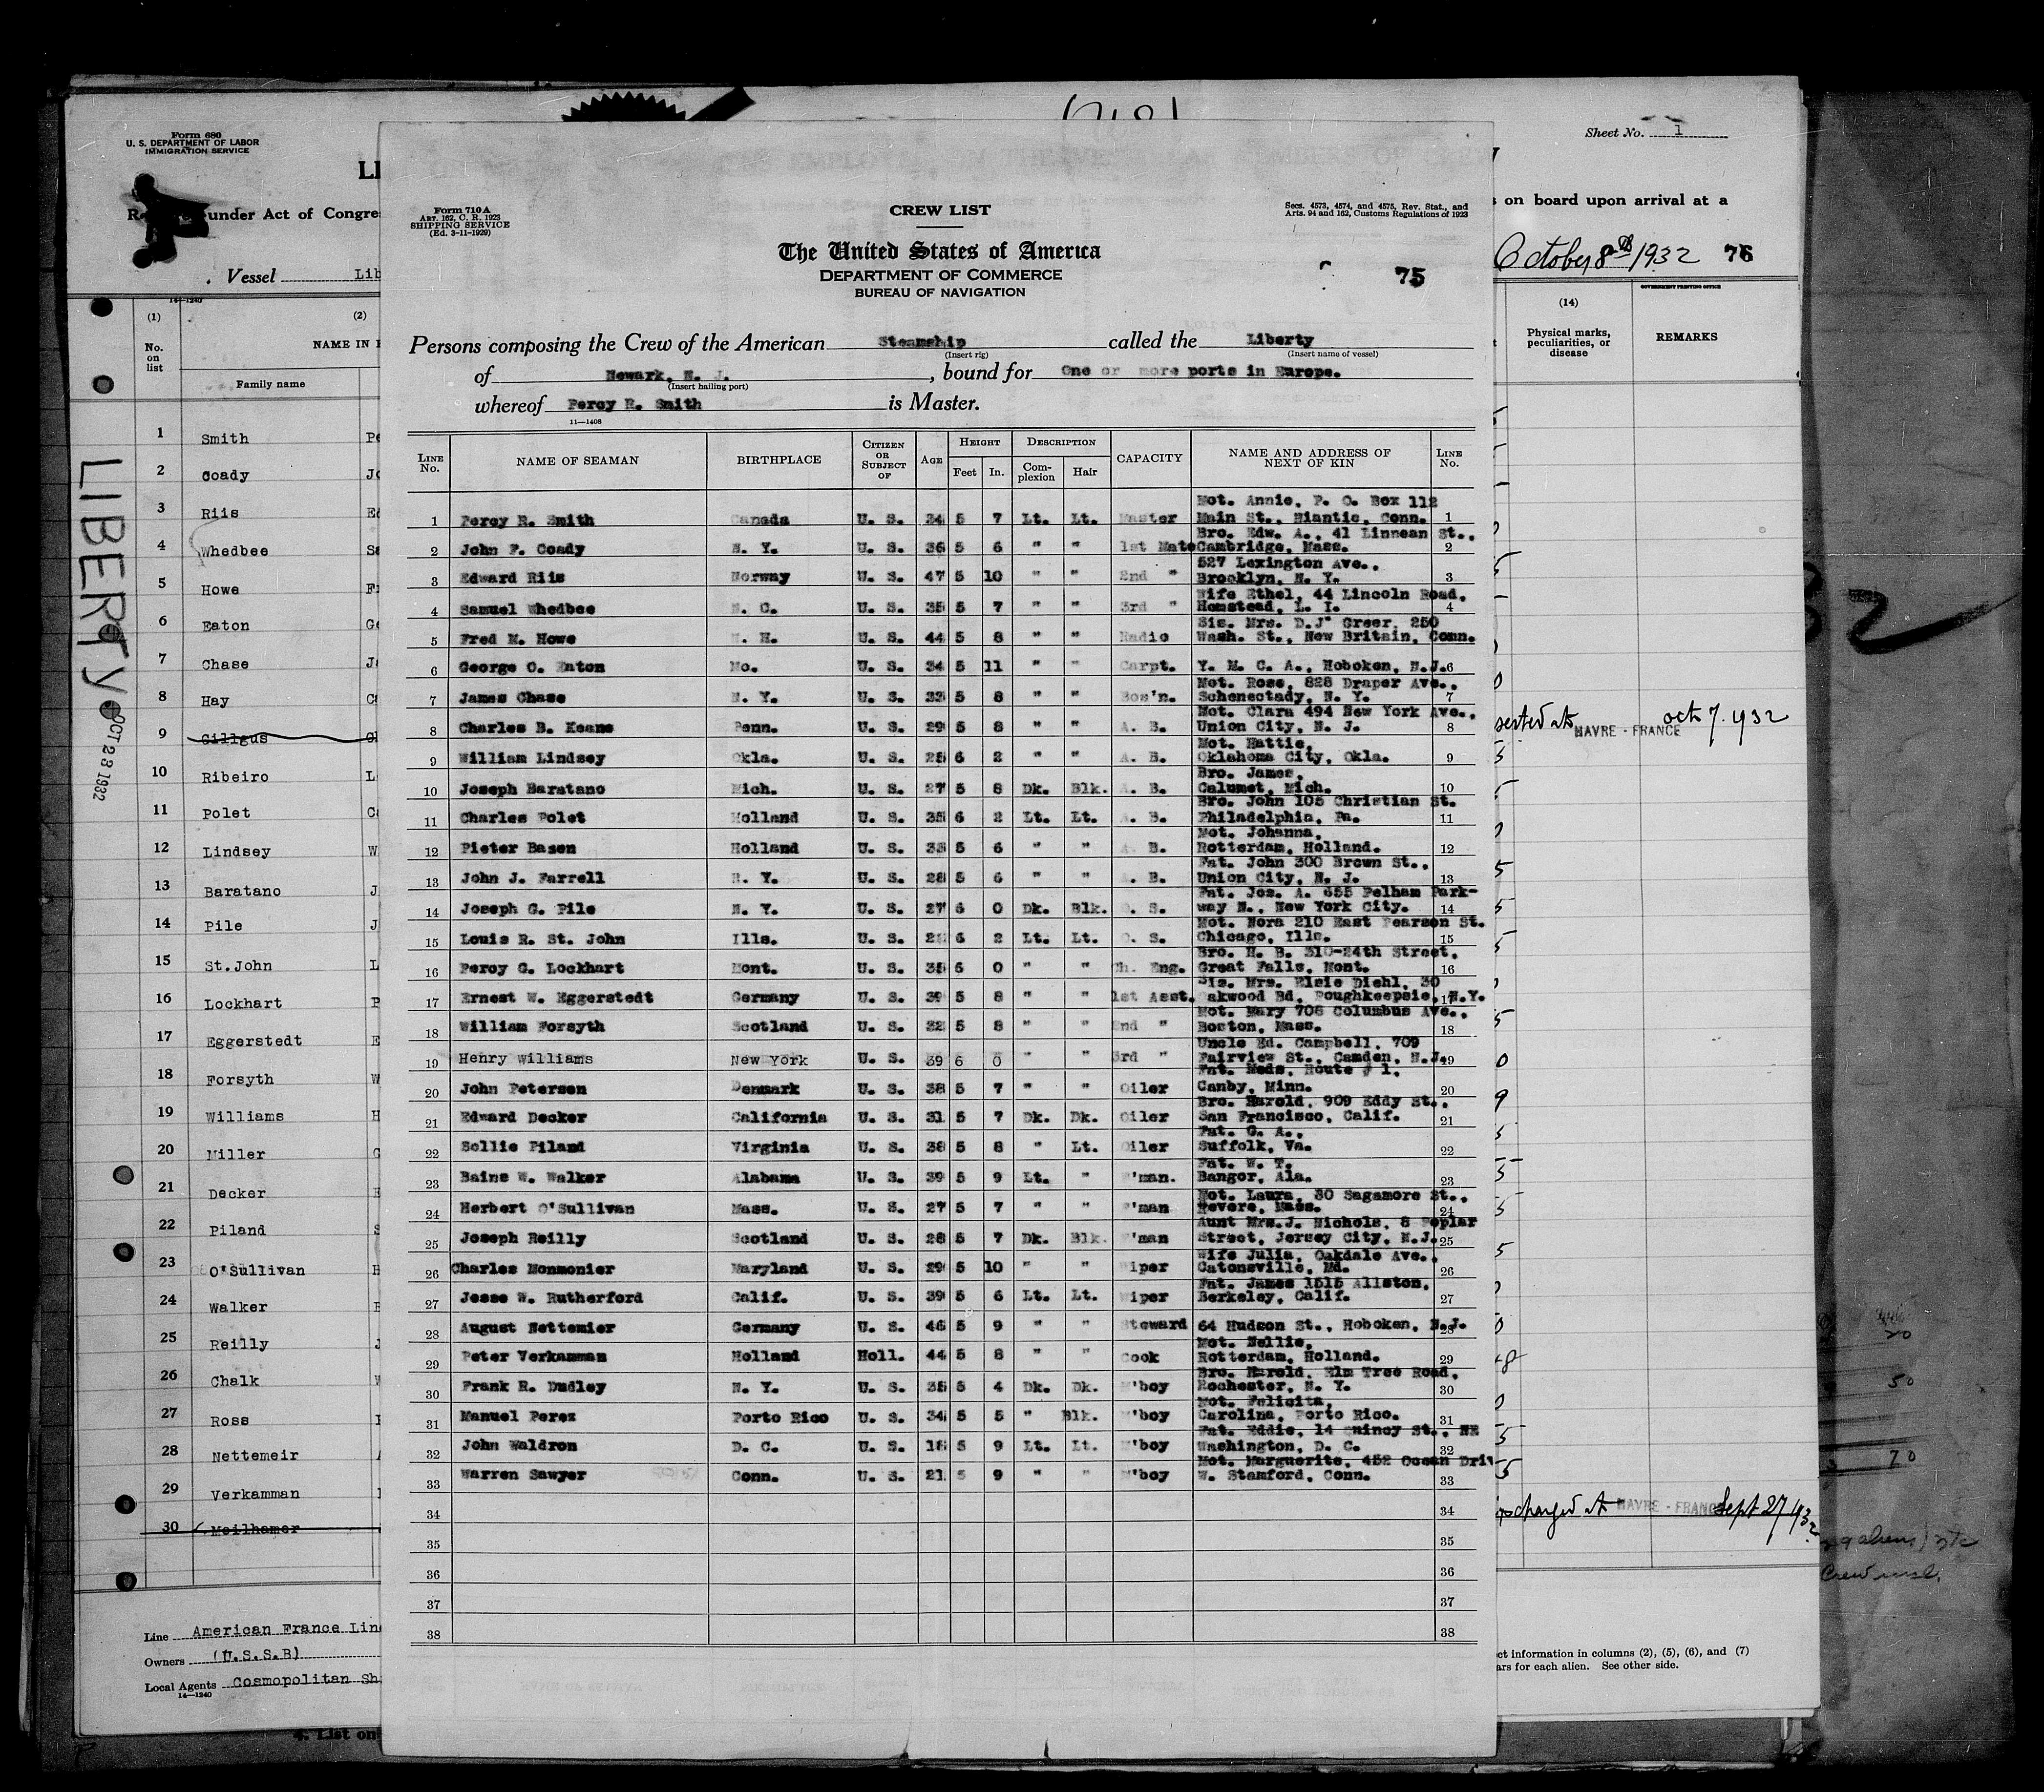 Form 680
U. S. DEPARTMENT OF LABOR
IMMIGRATION SERVICE
under Act of Congre
Vessel Lib
14—1240
(1) (2)
No. on list
NAME IN
Family name
1 Smith
2 Coady
3 Riis
4 Whedbee
5 Howe
6 Eaton
7 Chase
8 Hay
9 Gillgus
10 Ribeiro
11 Polet
12 Lindsey
13 Baratano
14 Pile
15 St.John
16 Lockhart
17 Eggerstedt
18 Forsyth
19 Williams
20 Miller
21 Decker
22 Piland
23 O'Sullivan
24 Walker
25 Reilly
26 Chalk
27 Ross
28 Nettemeir
29 Verkamman
30 Meilhamer
Line American France Line
Owners (U.S.S.B)
Local Agents Cosmopolitan Sh
14—1240
4. List on
LIBERTY
OCT 23 1932
Form 710 A
ART. 162, C. R. 1923
SHIPPING SERVICE
(Ed. 3-11-1929)
CREW LIST
Secs. 4573, 4574, and 4575, Rev. Stat., and
Arts. 94 and 162, Customs Regulations of 1923
The United States of America
DEPARTMENT OF COMMERCE
BUREAU OF NAVIGATION
75
Persons composing the Crew of the American Steamship called the Liberty
(Insert rig) (Insert name of vessel)
of Newark, N. J. , bound for One or more ports in Europe.
(Insert hailing port)
whereof Percy R. Smith is Master.
11—1408
LINE No. NAME OF SEAMAN BIRTHPLACE CITIZEN OR SUBJECT OF AGE HEIGHT Feet In. DESCRIPTION Complexion Hair CAPACITY NAME AND ADDRESS OF NEXT OF KIN LINE No.
Mot. Annie, P. O. Box 112
1 Percy R. Smith Canada U. S. 34 5 7 Lt. Lt. Master Main St., Niantic, Conn. 1
Bro. Edw. A., 41 Linnean St.,
2 John F. Coady N. Y. U. S. 36 5 6 " " 1st Mate Cambridge, Mass. 2
527 Lexington Ave.,
3 Edward Riis Norway U. S. 47 5 10 " " 2nd " Brooklyn, N. Y. 3
Wife Ethel, 44 Lincoln Road,
4 Samuel Whedbee N. C. U. S. 35 5 7 " " 3rd " Hemstead, L. I. 4
Sis. Mrs. D.J. Greer, 250
5 Fred M. Howe N. H. U. S. 44 5 8 " " Radio Wash. St., New Britain, Conn. 5
6 George C. Eaton Mo. U. S. 34 5 11 " " Carpt. Y. M. C. A., Hoboken, N.J. 6
Mot. Rose, 828 Draper Ave.,
7 James Chase N. Y. U. S. 5 8 " " Bos'n. Schenectady, N. Y. 7
Mot. Clara 494 New York Ave.,
8 Charles B. Keans Penn. U. S. 29 5 8 " " A. B. Union City, N. J. 8
Mot. Hattie,
9 William Lindsey Okla. U. S. 25 6 2 " " A. B. Oklahoma City, Okla. 9
Bro. James,
10 Joseph Baratano Mich. U. S. 27 5 8 Dk. Blk. A. B. Calumet, Mich. 10
Bro. John 105 Christian St.
11 Charles Polet Holland U. S. 35 6 2 Lt. Lt. A. B. Philadelphia, Pa. 11
Mot. Johanna,
12 Pieter Basen Holland U. S. 33 5 6 " " A. B. Rotterdam, Holland. 12
Fat. John 300 Brown St.,
13 John J. Farrell N. Y. U. S. 28 5 6 " " A. B. Union City, N. J. 13
Fat. Jos. A. 655 Pelham Park-
14 Joseph G. Pile N. Y. U. S. 27 6 0 Dk. Blk. O. S. way N., New York City. 14
Mot. Nora 210 East Pearson St.
15 Louis R. St. John Ills. U. S. 6 2 Lt. Lt. O. S. Chicago, Ills. 15
Bro. H. B. 310-24th Street,
16 Percy G. Lockhart Mont. U. S. 35 6 0 " " Ch. Eng. Great Falls, Mont. 16
Sis. Mrs. Elsie Diehl, 30
17 Ernest W. Eggerstedt Germany U. S. 39 5 8 " " 1st Asst. Oakwood Bd, Poughkeepsie, N.Y. 17
Mot. Mary 708 Columbus Ave.,
18 William Forsyth Scotland U. S. 32 5 8 " " 2nd " Boston, Mass. 18
Uncle Ed. Campbell, 709
19 Henry Williams New York U. S. 39 6 0 " " 3rd " Fairview St., Camden, N.J. 19
Fat. Neds, Route # 1,
20 John Petersen Denmark U. S. 38 5 7 " " Oiler Canby, Minn. 20
Bro. Harold, 909 Eddy St.,
21 Edward Decker California U. S. 31 5 7 Dk. Dk. Oiler San Francisco, Calif. 21
Fat. G. A.,
22 Sollie Piland Virginia U. S. 38 5 8 " Lt. Oiler Suffolk, Va. 22
Fat. W. T.
23 Bains W. Walker Alabama U. S. 39 5 9 Lt. " F'man. Bangor, Ala. 23
Mot. Laura, 30 Sagamore St.,
24 Herbert O'Sullivan Mass. U. S. 27 5 7 " " F'man Revere, Mass. 24
Aunt Mrs. J. Nichols, 8 Poplar
25 Joseph Reilly Scotland U. S. 28 5 7 Dk. Blk. F'man Street, Jersey City, N.J. 25
Wife Julia, Oakdale Ave.,
26 Charles Monmonier Maryland U. S. 29 5 10 " " Wiper Catonsville, Md. 26
Fat. James 1515 Allston,
27 Jesse W. Rutherford Calif. U. S. 39 5 6 Lt. Lt. Wiper Berkeley, Calif. 27
28 August Nettemier Germany U. S. 46 5 9 " " Steward 64 Hudson St., Hoboken, N.J. 28
Mot. Nellie,
29 Peter Verkamman Holland Holl. 44 5 8 " " Cook Rotterdam, Holland. 29
Bro. Harold, Elm Tree Road,
30 Frank R. Dudley N. Y. U. S. 35 5 4 Dk. Dk. M'boy Rochester, N. Y. 30
Mot. Felicita,
31 Manuel Perez Porto Rico U. S. 34 5 5 " Blk. M'boy Carolina, Porto Rico. 31
Fat. Eddie, 14 Quincy St., NE
32 John Waldron D. C. U. S. 18 5 9 Lt. Lt. M'boy Washington, D. C. 32
Mot. Marguerite, 452 Ocean Driv
33 Warren Sawyer Conn. U. S. 21 5 9 " " M'boy W. Stamford, Conn. 33
34 34
35 35
36 36
37 37
38 38
Sheet No. 1
on board upon arrival at a
October 8th 1932 76
GOVERNMENT PRINTING OFFICE
(14)
Physical marks, peculiarities, or disease
REMARKS
serted at HAVRE - FRANCE oct 7. 1932
scharged at HAVRE - FRANCE Sept 27 1932
ct information in columns (2), (5), (6), and (7)
ars for each alien. See other side.
50
70